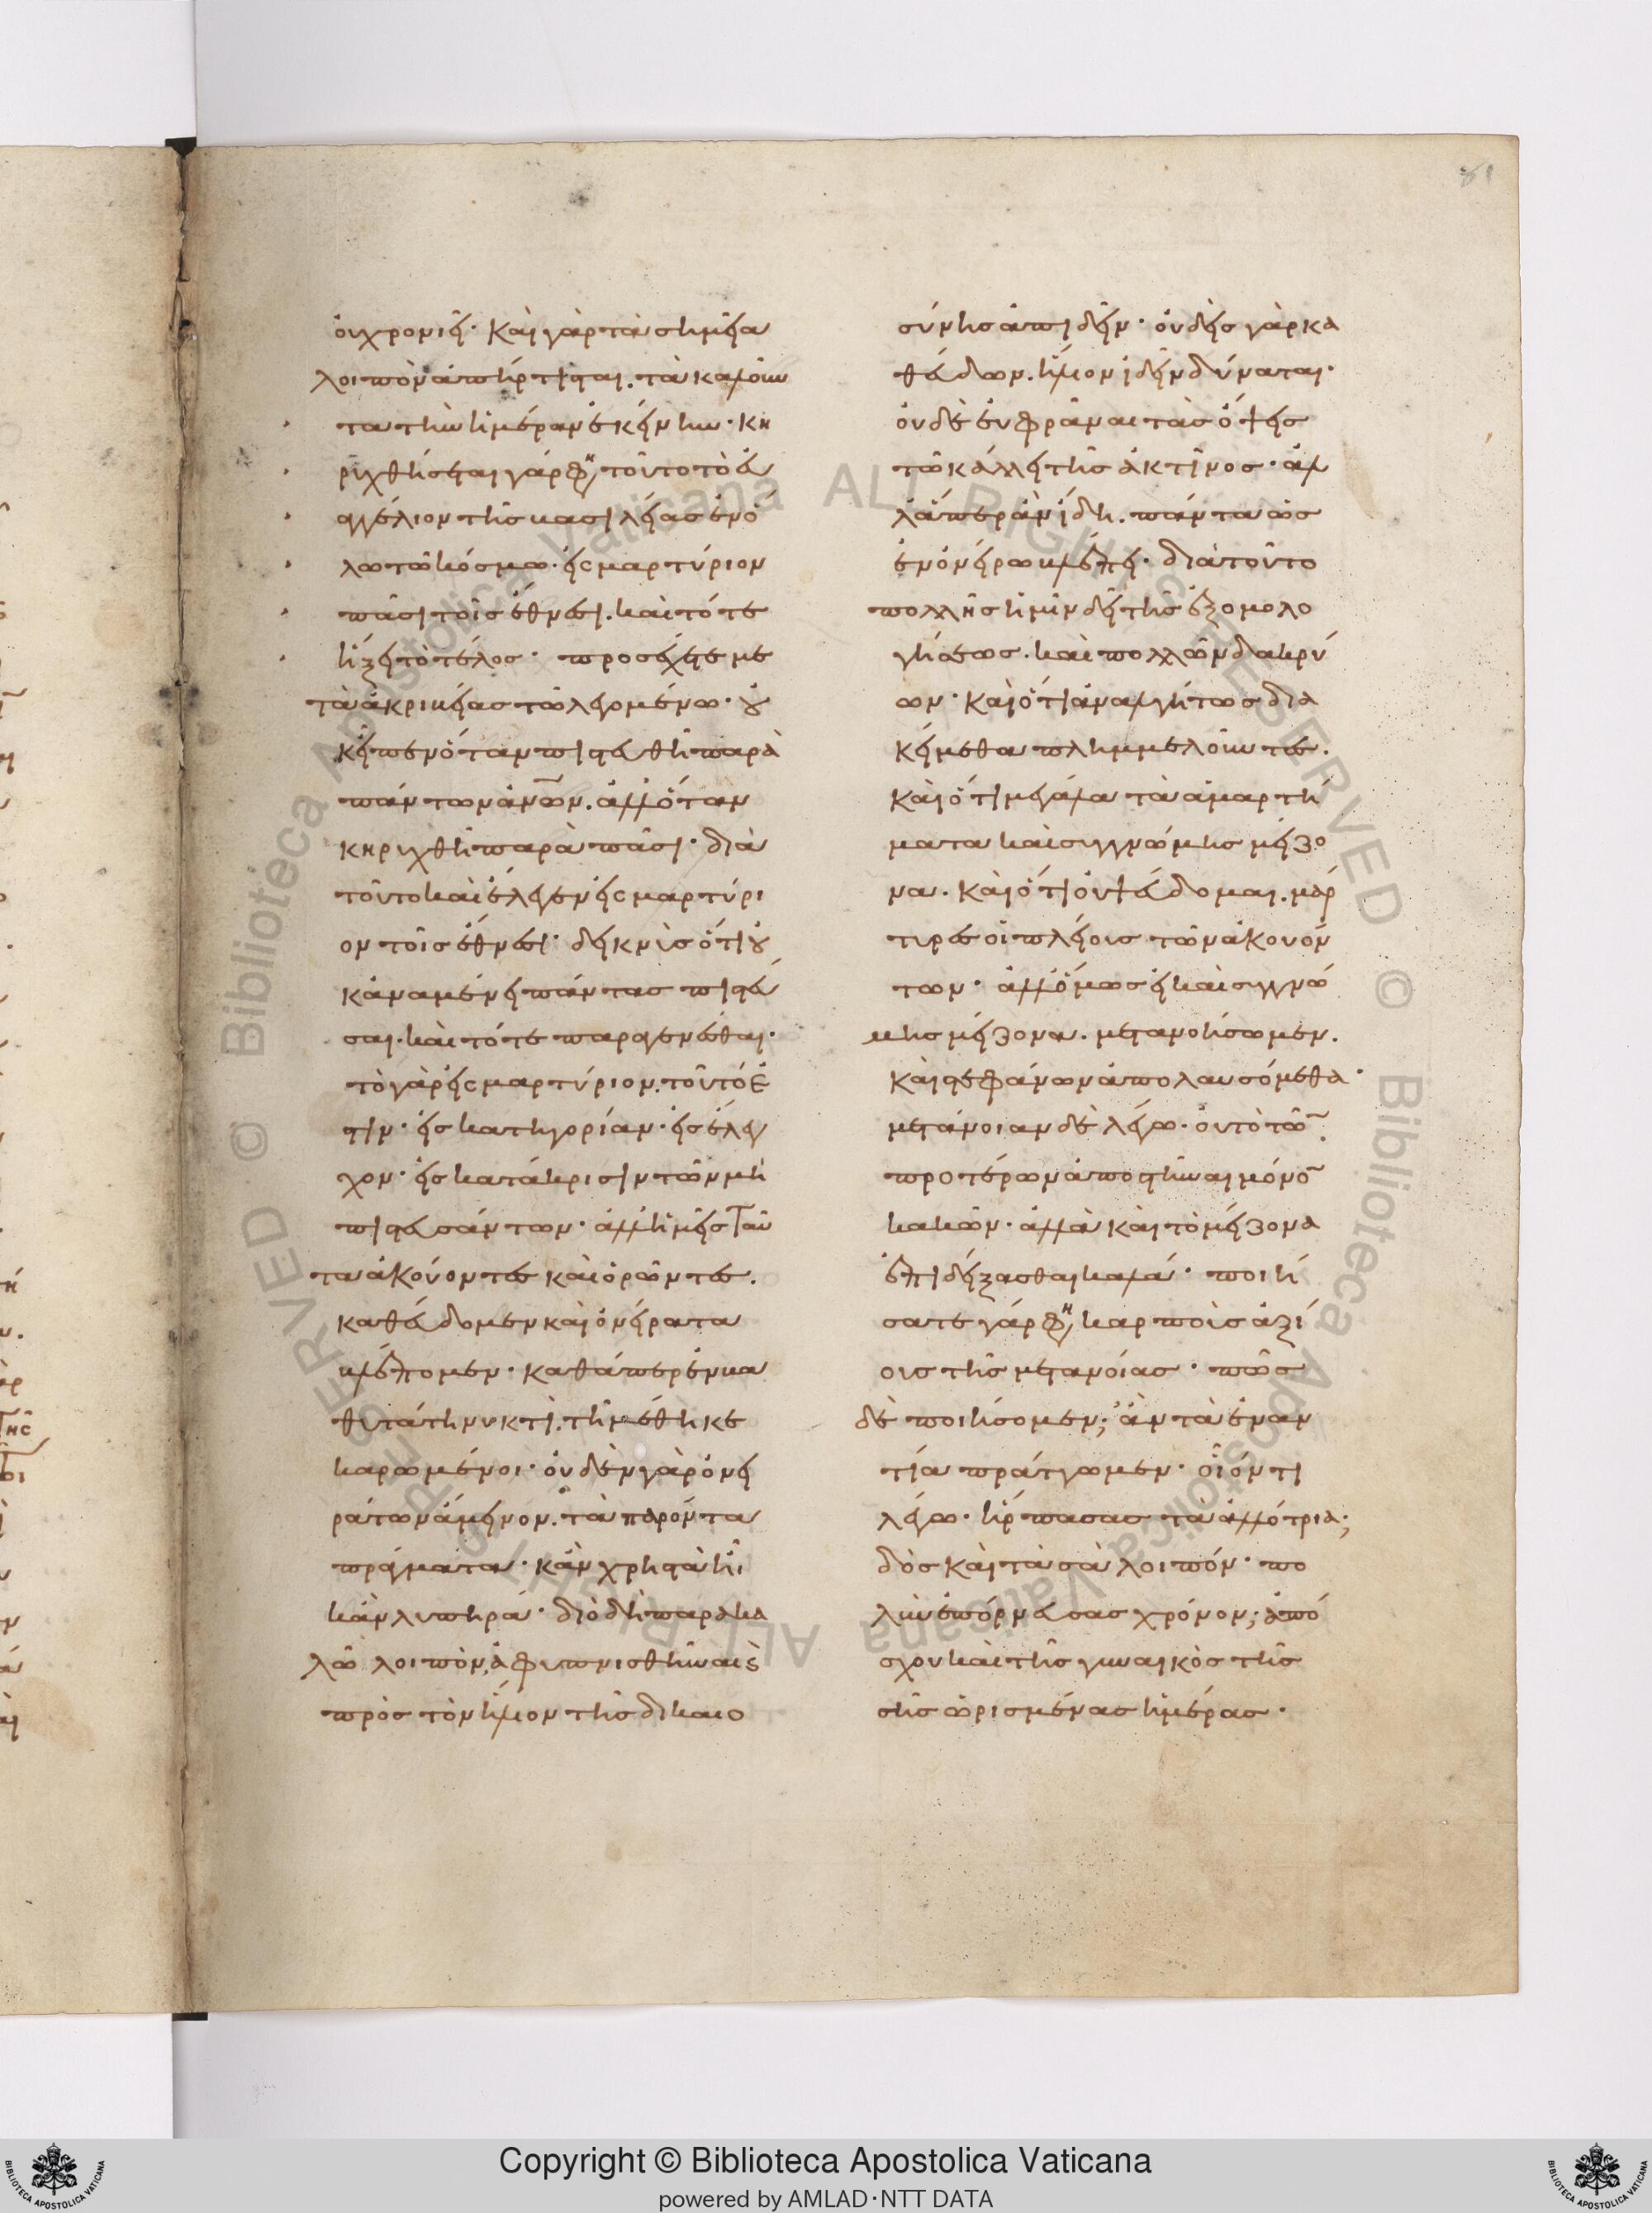 81
οὐ χρονιεῖ· καὶ γὰρ τὰ σημεῖα
λοιπὸν ἀπήρτισται. τὰ καλοῦν
τα τὴν ἡμέραν ἐκείνην· κη
ρυχθήσεται γάρ φη τοῦτο τὸ εὐ
αγγέλιον τῆς βασιλείας ἐν ὅ
λω τῶ κόσμω· εἰς μαρτύριον
πᾶσι τοῖς ἔθνεσι. καὶ τότε
ἥξει τὸ τέλος· προσέχετε με
τὰ ἀκριβείας τῶ λεγομένω· οὐ
κ εἶπεν ὅταν πιστευθῆ παρὰ
πάντων ἀνων. ἀλλ' ὅταν
κηρυχθῆ παρὰ πᾶσι· διὰ
τοῦτο καὶ ἔλεγεν εἰς μαρτύρι
ον τοῖς ἔθνεσι· δεικνὺς ὅτι οὐ
κ ἀναμένει πάντας πιστεῦ
σαι. καὶ τότε παραγενέσθαι·
τὸ γὰρ εἰς μαρτύριον. τοῦτό ἐ
στιν· εἰς κατηγορίαν· εἰς ἔλεγ
χον· εἰς κατάκρισιν τῶν μὴ
πιστευσάντων· ἀλλ' ἡμεῖς ταῦ
τα ἀκούοντες καὶ ὁρῶντες.
καθεύδομεν καὶ ὀνείρατα
βλέπομεν· καθάπερ ἐν βα
θυτάτη νυκτὶ. τῆ μέθη κε
καρωμένοι· οὐδὲν γὰρ ὀνει
ράτων ἄμεινον. τὰ παρόντα
πράγματα· κἂν χρηστὰ ἦ
κἂν λυπηρά· διὸ δὴ παρακα
λῶ λοιπὸν, ἀφυπνισθῆναι καὶ
πρὸς τὸν ἥλιον τῆς δικαιο
σύνης ἀπιδεῖν· οὐδεὶς γὰρ κα
θεύδων. ἥλιον ἰδεῖν δύναται·
οὐδὲ εὐφρᾶναι τὰς ὄψεις
τῶ κάλλει τῆς ἀκτῖνος· ἀλ
λ' ἅπερ ἂν ἴδη. πάντα ὡς
ἐν ὀνείρω βλέπει· διὰ τοῦτο
πολλῆς ἡμῖν δεῖ τῆς ἐξομολο
γήσεως. καὶ πολλῶν δακρύ
ων· καὶ ὅτι ἀναλγήτως δια
κείμεθα πλημμελοῦντες.
καὶ ὅτι μεγάλα τὰ ἁμαρτή
ματα καὶ συγγνώμης μείζο
να. καὶ ὅτι οὐ ψεύδομαι. μάρ
τυρες οἱ πλείους τῶν ἀκουόν
των· ἀλλ' ὅμως εἰ καὶ συγγνώ
μης μείζονα. μετανοήσωμεν.
καὶ στεφάνων ἀπολαυσόμεθα·
μετάνοιαν δὲ λέγω· οὐ τὸ τῶν
προτέρων ἀποστῆναι μόνον
κακῶν· ἀλλὰ καὶ τὸ μείζονα
ἐπιδείξασθαι καλά· ποιή
σατε γάρ φη καρποὺς ἀξί
ους τῆς μετανοίας· πῶς
δὲ ποιήσομεν; ἂν τὰ ἐναν
τία πράττωμεν· οἷόν τι
λέγω· ἥρπασας τὰ ἀλλότρια;
δὸς καὶ τὰ σὰ λοιπόν· πο
λὺν ἐπόρνευσας χρόνον; ἀπό
σχου καὶ τῆς γυναικὸς τῆς
σῆς ὡρισμένας ἡμέρας·
Copyright © Biblioteca Apostolica Vaticana
powered by AMLAD·NTT DATA